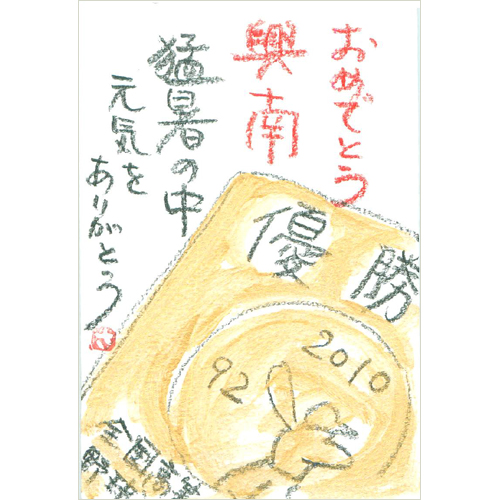 おめでとう
興南
猛暑の中
元気を
ありがとう
優勝
2010
92
全国高
野球